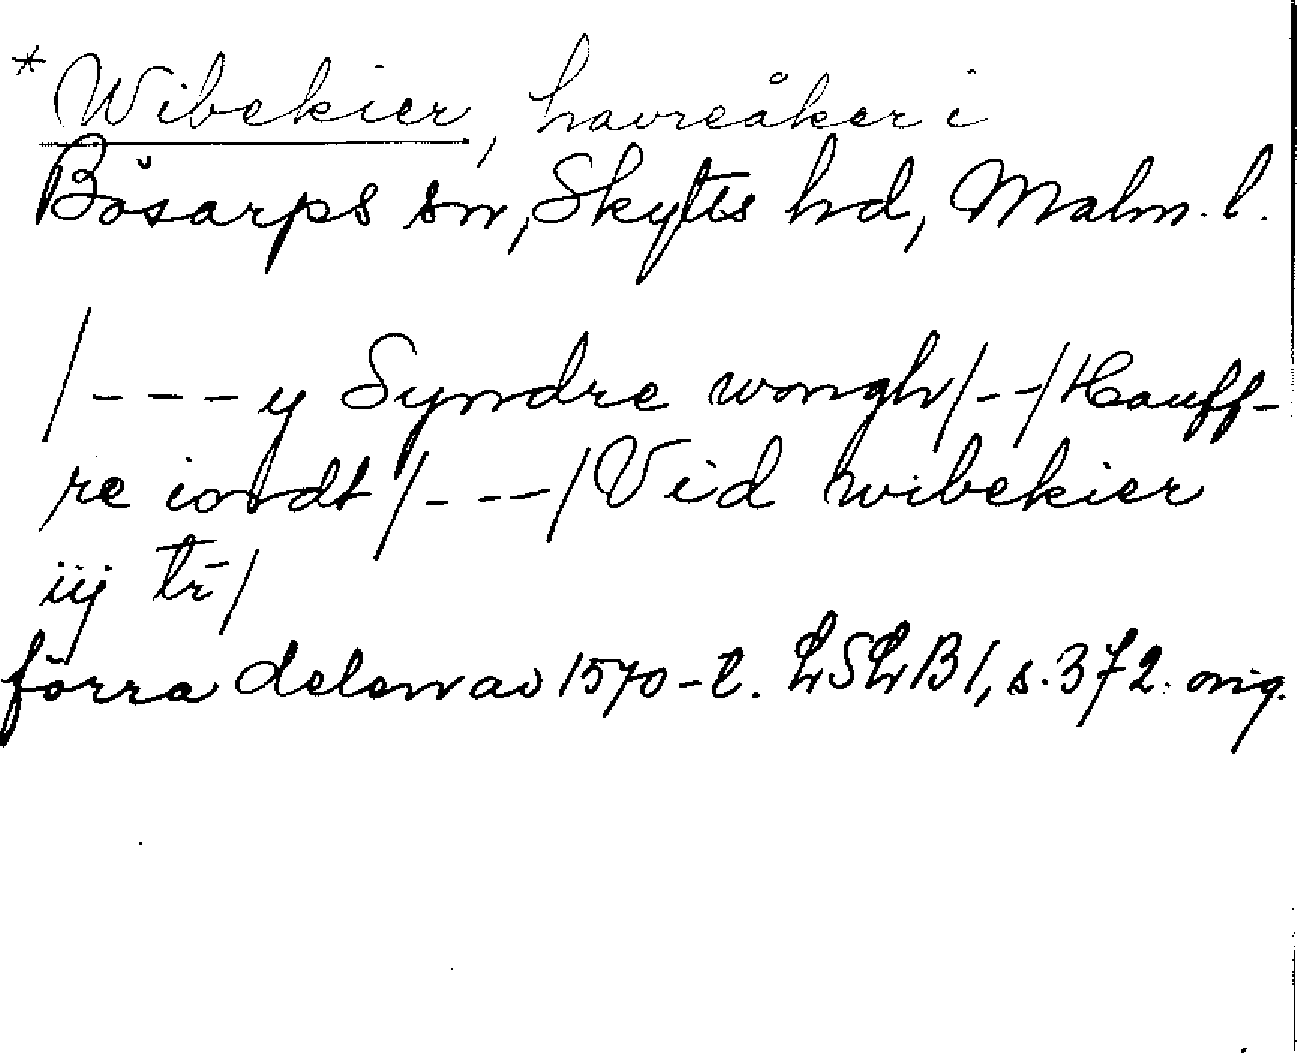 *Wibekier, havreåker i
Bösarps sn, Skytts hd, Malm. l.
/---y Syndre wongh/--/Hauff-
re iordt/---/Vid wibekier
iij tr̄/
förra delen av 1570-t. LSLB1, s. 372. orig.